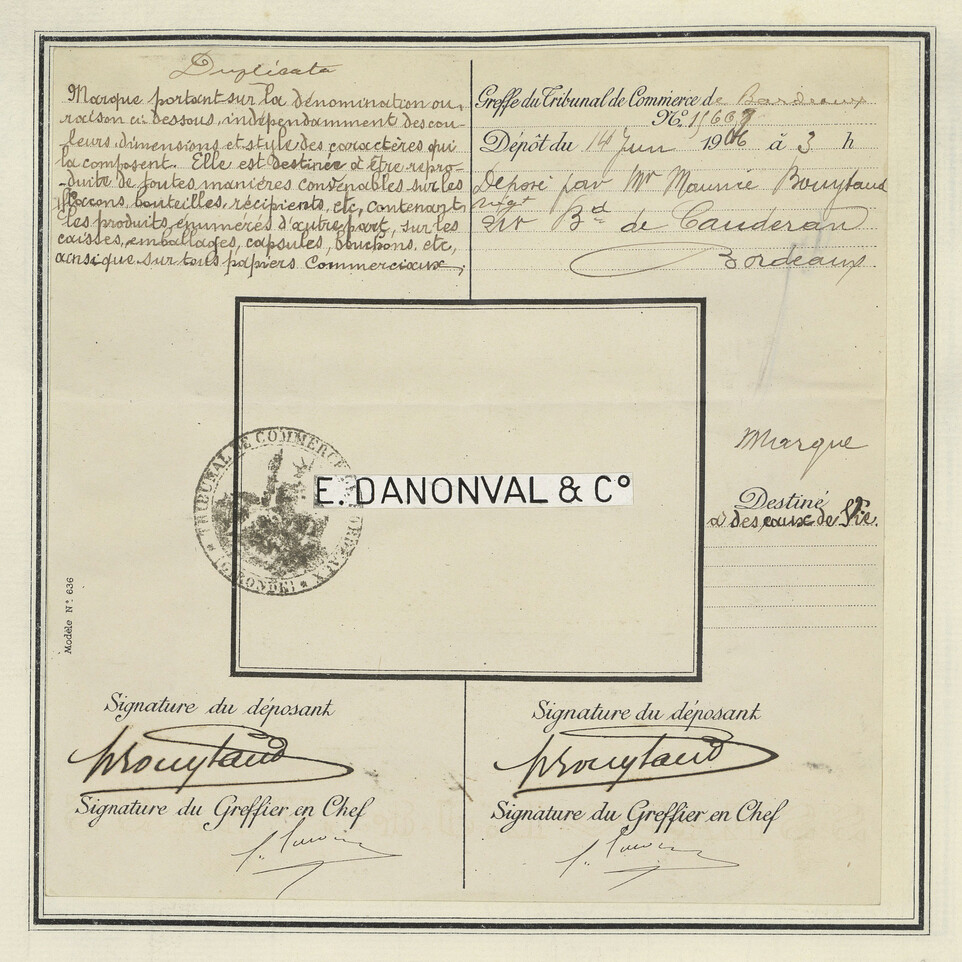 Duplicata
Marque portant sur la dénomination ou
raison ci-dessous, indépendamment des cou-
leurs, dimensions et style des caractères qui
la composent. Elle est destinée à être repro-
duite de toutes manières convenables sur les
flacons, bouteilles, récipients, etc, contenant
les produits, énumérés d'autre part, sur les
caisses, emballages, capsules, bouchons, etc,
ainsi que sur tous papiers Commerciaux.
Greffe du Tribunal de Commerce de Bordeaux
N°.
Dépôt du 14 Juin 1906 à 3 h
Déposé par Mr Maurice Bouytaud
négt
Bd de Caudéran
Bordeaux
TRIBUNAL DE COMMERCE DE BORDEAUX
(GIRONDE)
E. DANONVAL & Co
Marque
Destiné
à des eaux de Vie.
Modèle N° 636
Signature du déposant
MBouytaud
Signature du Greffier en Chef
Signature du déposant
MBouytaud
Signature du Greffier en Chef